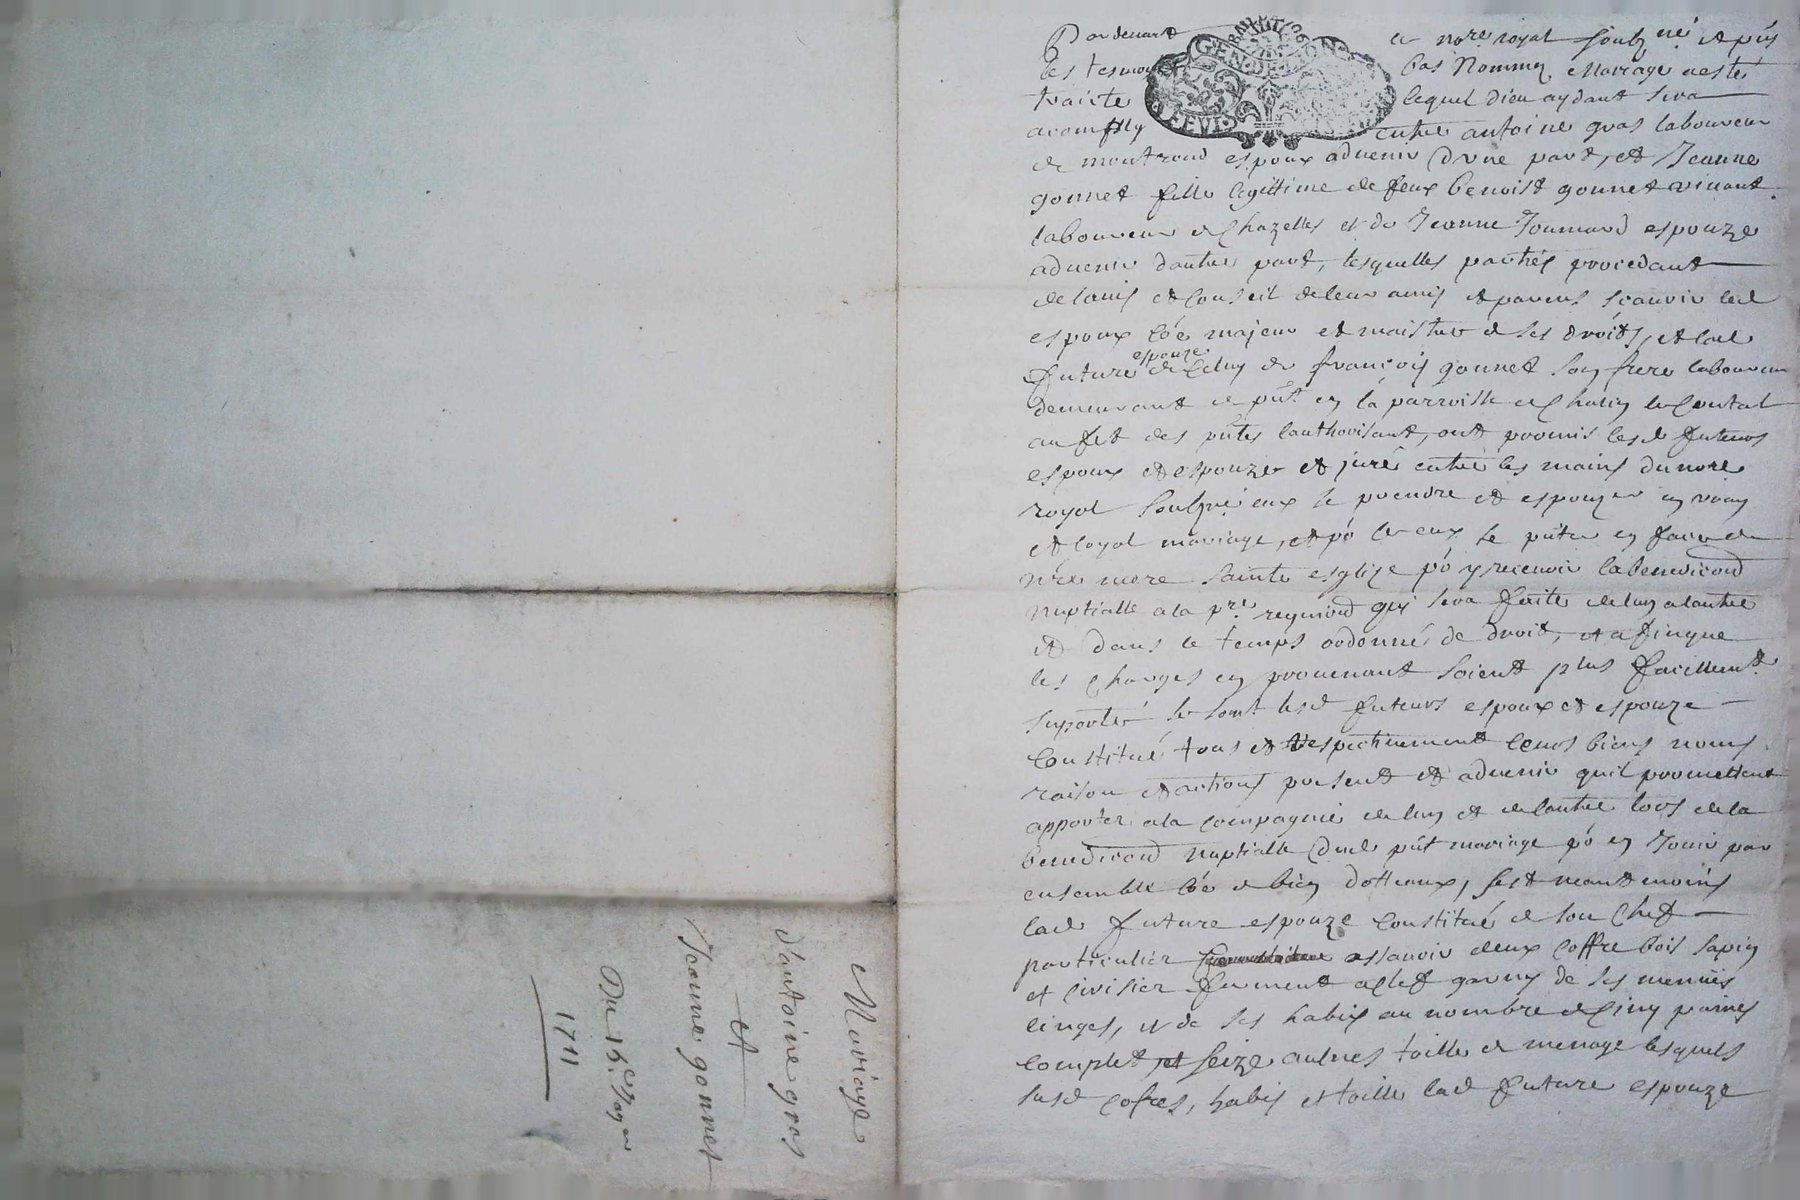 Mariage
d'antoine gras
et
Jeanne gonnet
Du 16e
1711
GEN DE LYON
Pardevant le nore royal soubzne et puis
les tesmoins bas Nommez, Mariage a esté
traicte lequel dieu aydant sera
acomply entre antoine gras laboureur
de montrond espoux advenir d'une part, et Jeanne
gonnet fille legittime de feux benoist gonnet vivant
laboureur de Chazelles et de Jeanne Joumard espouze
advenir d'autre part, lesquelles parties procedant
de lavis et conseil de leur amis et parens scavoir led
espoux co͞e majeur et maistre de ses droits, et lad
future espouze de celuy de françois gonnet son frere laboureur
demeurant de pn͞t en la parroisse de Chalin le Contal
au fet des pn͞tes lauthorisant, ont promis lesd futeurs
espoux et espouze et juré entre les mains du nore
royal soubzne eux se prendre et espouzer en vray
et loyal mariage, et po͞ ce eux se pn͞ter en face de
n͞re mere sainte esglize po͞ y recevoir la benediction
nuptialle a la pre requisition quy sera faite de lun a lautre
et dans le temps ordonné de droit, et afinque
les charges en provenant soient plus facillemt
suporté se sont lesd futeurs espoux et espouze
Constitué tous et respectivement leurs biens noms
raison et actions present et advenir quil promettent
apporter a la compagnie de lun et de lautre lors de la
benediction nuptialle dud pn͞t mariage po͞ en Jouir par
ensemble co͞e de bien dotteaux, sest neantmoins
lad future espouze constitué de son chef
particulier assavoir deux coffre bois sapin
et civisier ferment a clef garny de ses menues
linges, et de ses habis au nombre de cinq paires
complet, et seize aulnes toille de menage lesquels
susd cofres, habis et toille lad future espouze